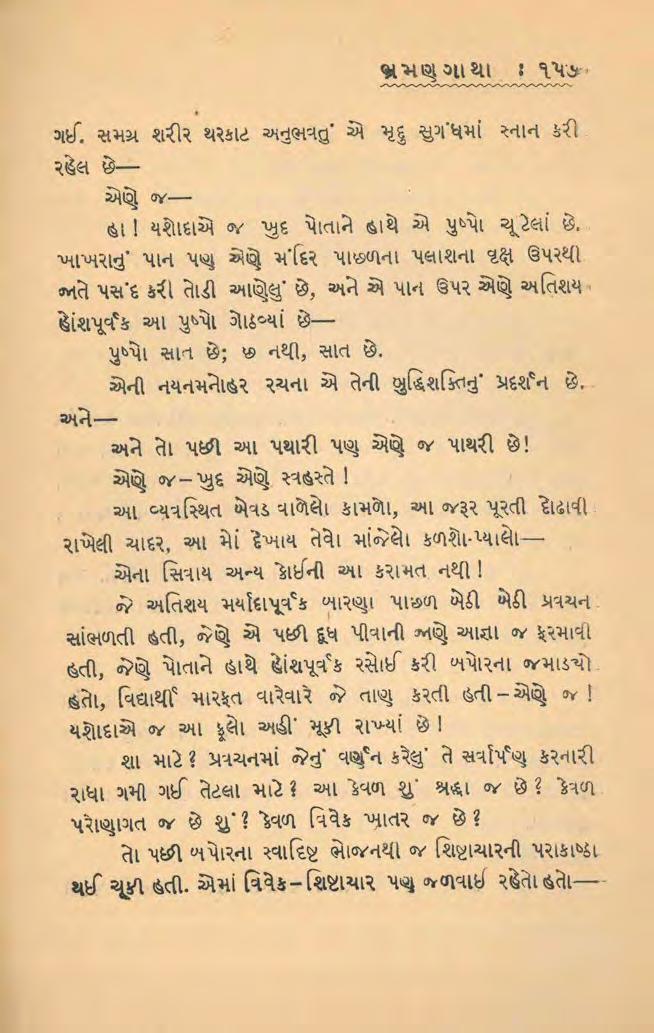 ભ્રમણગાથા : ૧૫૭
ગઈ. સમગ્ર શરીર થરકાટ અનુભવતું એ મૃદુ સુગંધમાં સ્નાન કરી
રહેલ છે—
એણે જ—
હા ! યશોદાએ જ ખુદ પોતાને હાથે એ પુષ્પો ચૂંટેલાં છે.
ખાખરાનું પાન પણ એણે મંદિર પાછળના પલાશના વૃક્ષ ઉપરથી
જાતે પસંદ કરી તોડી આણેલું છે, અને એ પાન ઉપર એણે અતિશય
હોંશપૂર્વક આ પુષ્પો ગોઠવ્યાં છે—
પુષ્પો સાત છે; છ નથી, સાત છે.
એની નયનમનોહર રચના એ તેની બુદ્ધિશક્તિનું પ્રદર્શન છે.
અને—
અને તો પછી આ પથારી પણ એણે જ પાથરી છે!
એણે જ – ખુદ એણે સ્વહસ્તે !
આ વ્યવસ્થિત બેવડ વાળેલો કામળો, આ જરૂર પૂરતી દોઢાવી
રાખેલી ચાદર, આ મોં દેખાય તેવો માંજેલો કળશો-પ્યાલો—
એના સિવાય અન્ય કોઈની આ કરામત નથી !
જે અતિશય મર્યાદાપૂર્વક બારણા પાછળ બેઠી બેઠી પ્રવચન
સાંભળતી હતી, જેણે એ પછી દૂધ પીવાની જાણે આજ્ઞા જ ફરમાવી
હતી, જેણે પોતાને હાથે હોંશપૂર્વક રસોઈ કરી બપોરના જમાડ્યો
હતો, વિદ્યાર્થી મારફત વારેવારે જે તાણ કરતી હતી – એણે જ !
યશોદાએ જ આ ફૂલો અહીં મૂકી રાખ્યાં છે !
શા માટે ? પ્રવચનમાં જેનું વર્ણન કરેલું તે સર્વાર્પણ કરનારી
રાધા ગમી ગઈ તેટલા માટે ? આ કેવળ શું શ્રદ્ધા જ છે ? કેવળ
પરોણાગત જ છે શું ? કેવળ વિવેક ખાતર જ છે ?
તો પછી બપોરના સ્વાદિષ્ટ ભોજનથી જ શિષ્ટાચારની પરાકાષ્ઠા
થઈ ચૂકી હતી. એમાં વિવેક – શિષ્ટાચાર પણ જળવાઈ રહેતો હતો—